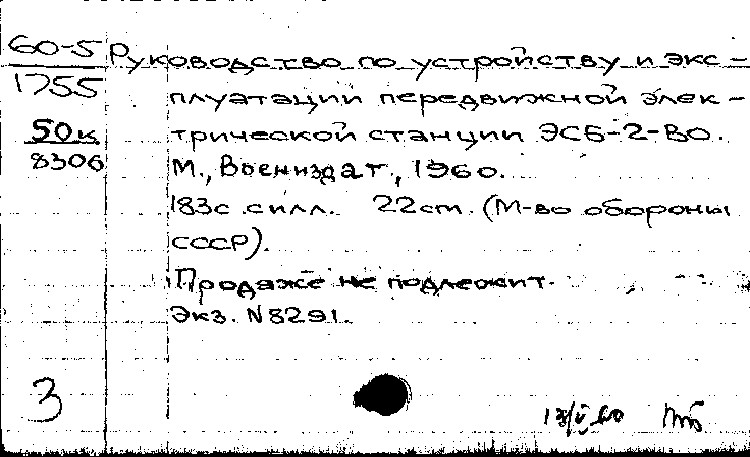 60-5 Руководство по устройству и экс-
1755
плуатации передвижной элек-
50к трической станции ЭСБ-2-ВО.
8306 М., Воениздат, 1960.
183с. с илл. 22cm. (М-во обороны
СССР).
Продаже не подлежит.
Экз. N8291.
3